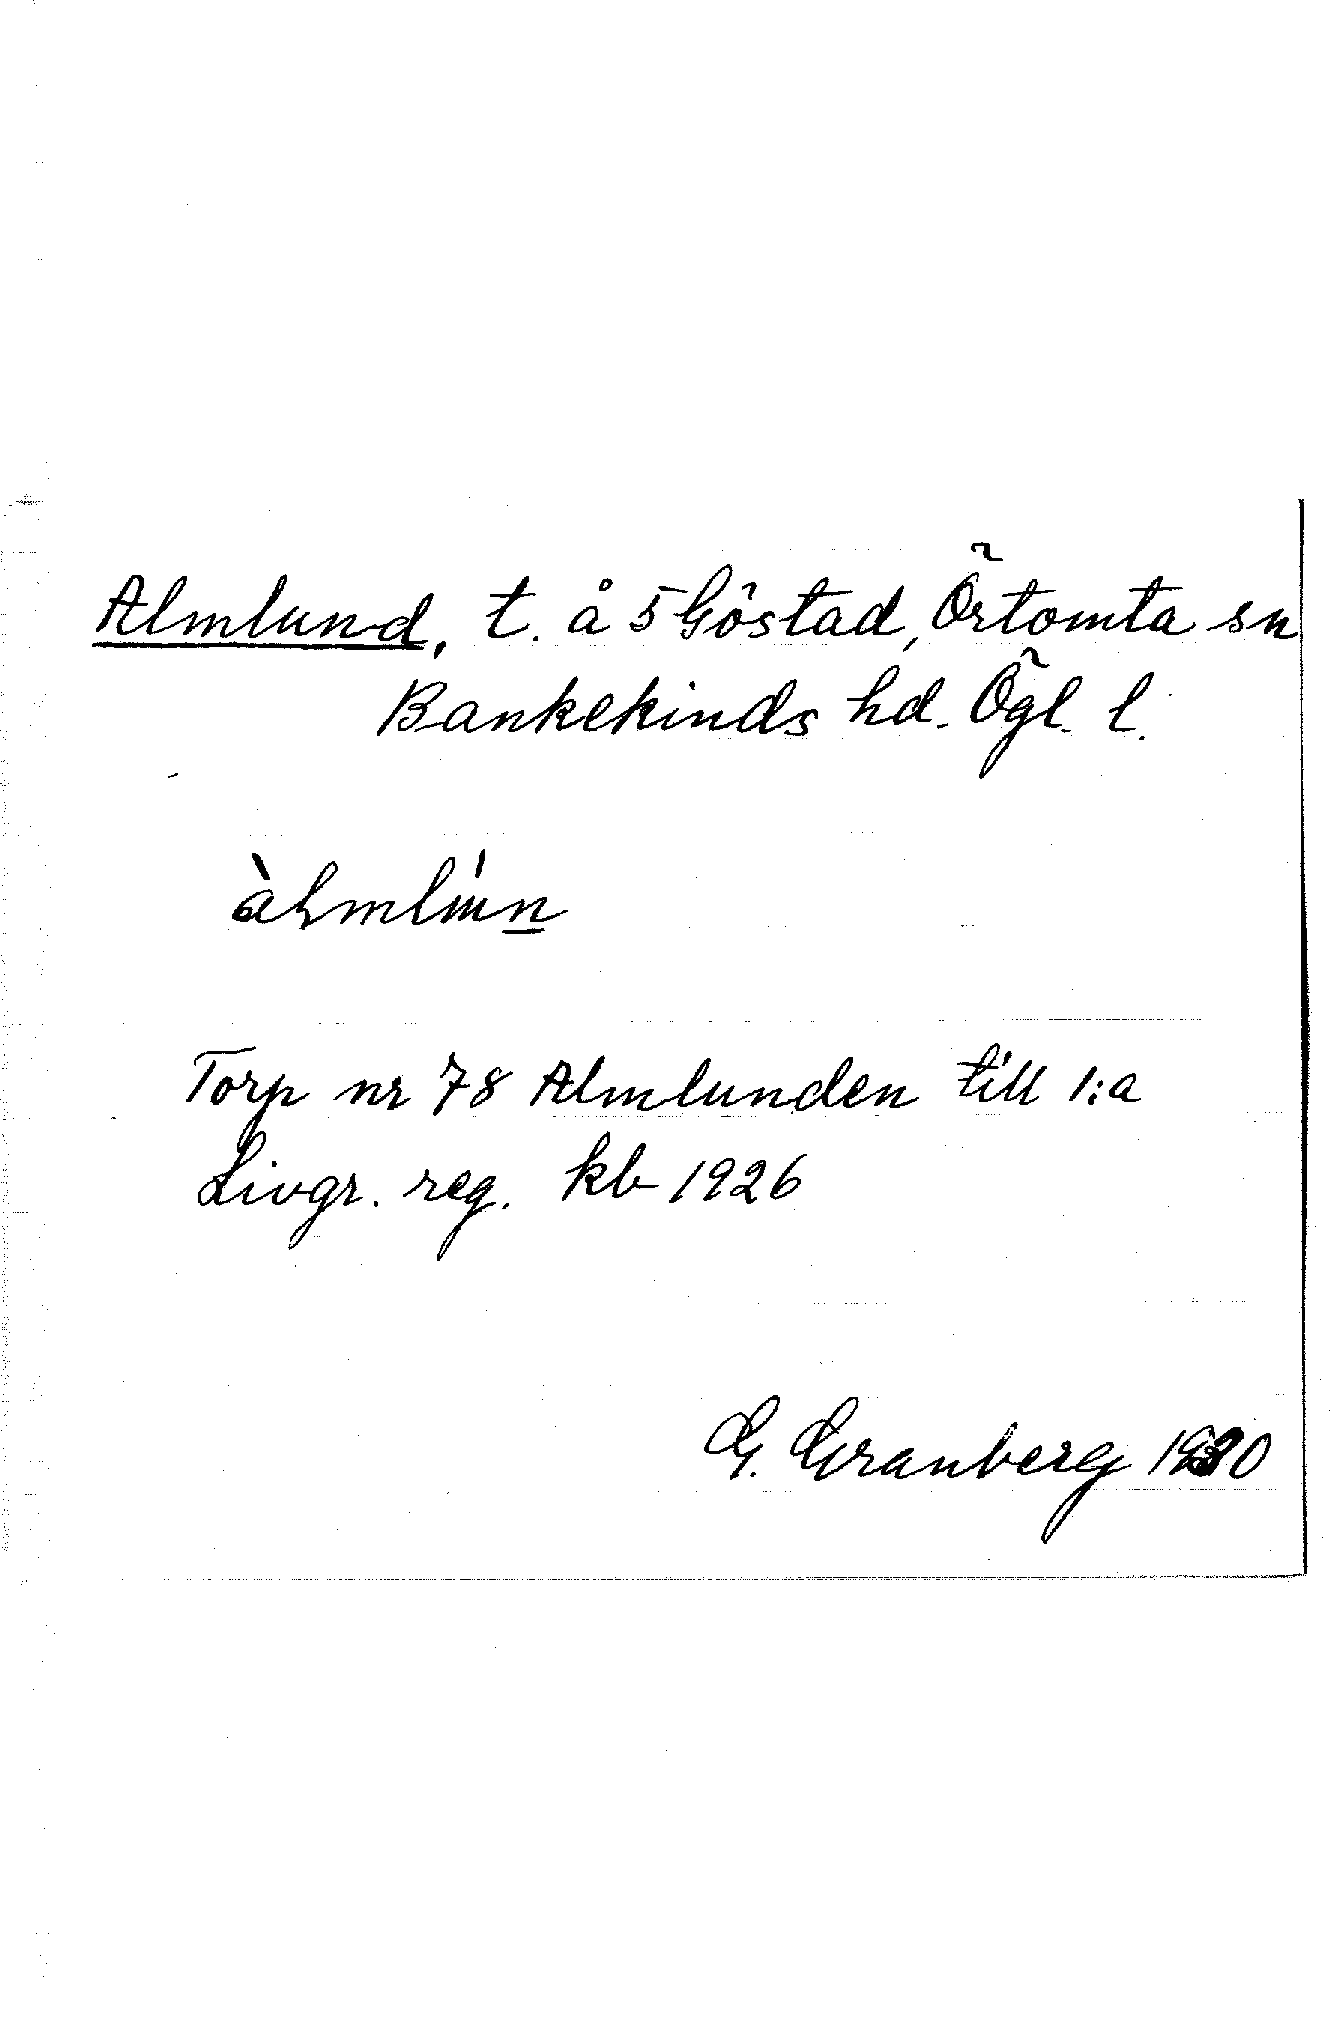 Almlund, t. å 5 Göstad, Örtomta sn
Bankekinds hd. Ögl. l.
Torp nr 78 Almlunden till 1:a
Livgr. reg. kb 1926
G. Granberg 1930